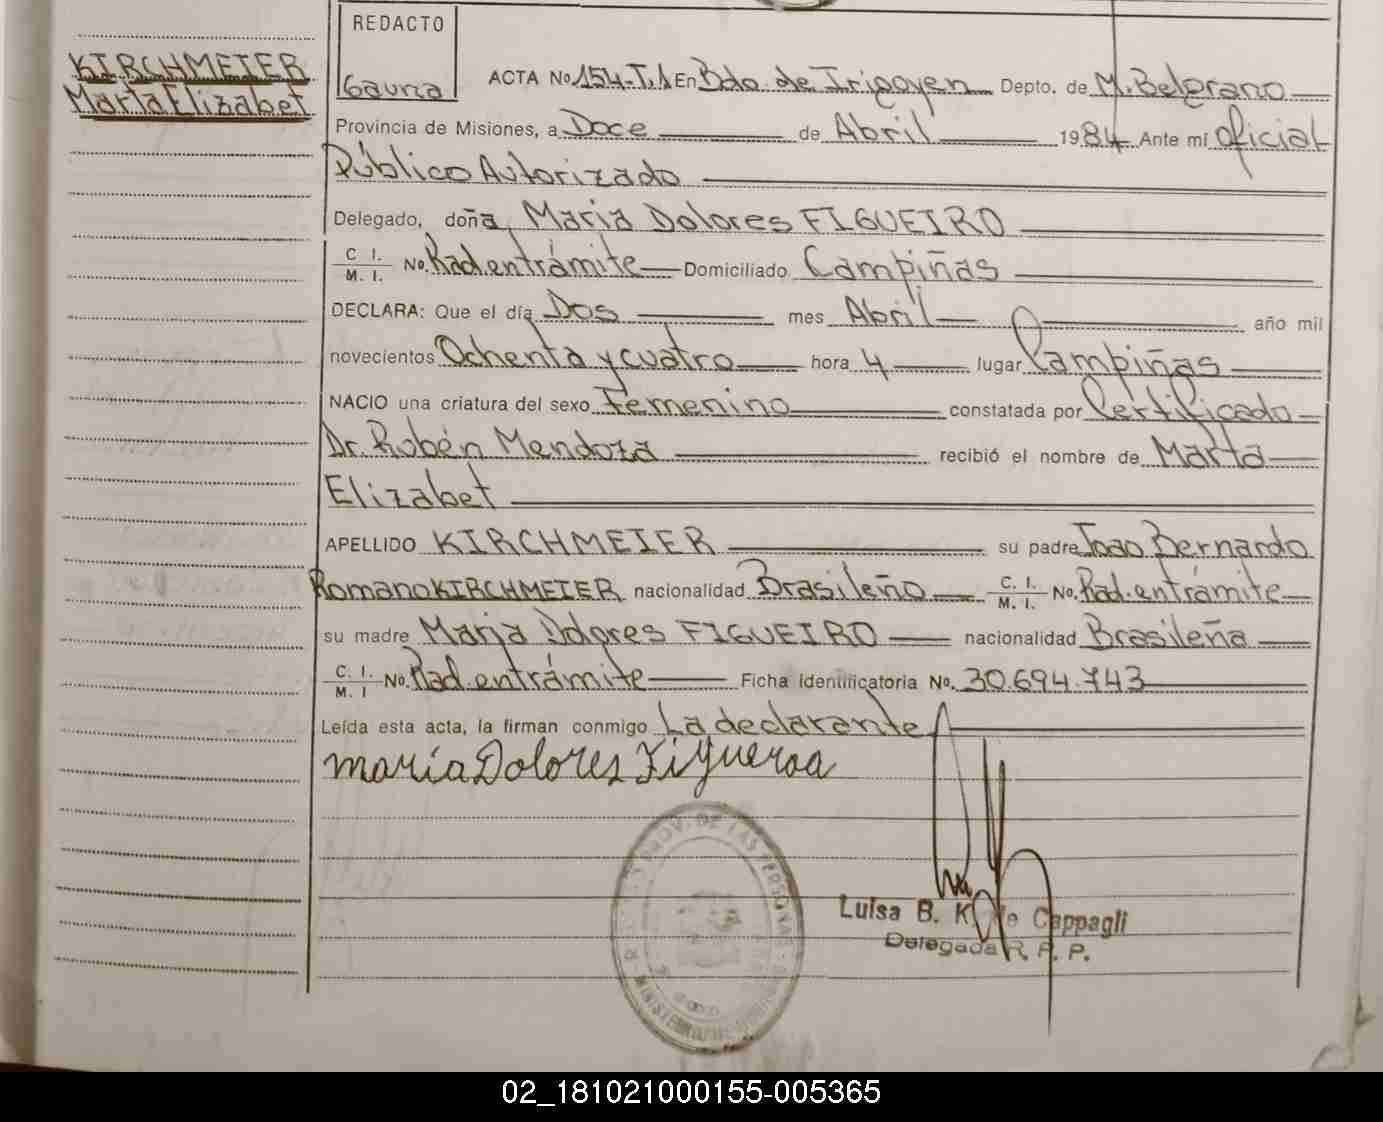 REDACTO
Gauna
KIRCHMEIER
Marta Elizabet
ACTA No. 154-T.1 En Bdo. de Irigoyen Depto. de M. Belgrano
Provincia de Misiones, a Doce de Abril 1984 Ante mí oficial
Público Autorizado
Delegado, doña María Dolores FIGUEIRO
C. I.
M. I. No. Rad. entrámite Domiciliado Campiñas
DECLARA: Que el día Dos mes Abril año mil
novecientos Ochenta y cuatro hora 4 lugar Campiñas
NACIO una criatura del sexo Femenino constatada por Certificado
Dr. Rubén Mendoza recibió el nombre de Marta
Elizabet
APELLIDO KIRCHMEIER su padre Joao Bernardo
Romano KIRCHMEIER nacionalidad Brasileño C. I. M. I. No. Rad. entrámite
su madre María Dolores FIGUEIRO nacionalidad Brasileña
C. I.
M. I No. Rad. entrámite Ficha Identificatoria No. 30.694.743
Leída esta acta, la firman conmigo La declarante
maría Dolores Figueroa
PROV. DE LAS PERSONAS
MINISTERIO
Luisa B. K. de Cappagli
Delegada R. P. P.
02_181021000155-005365